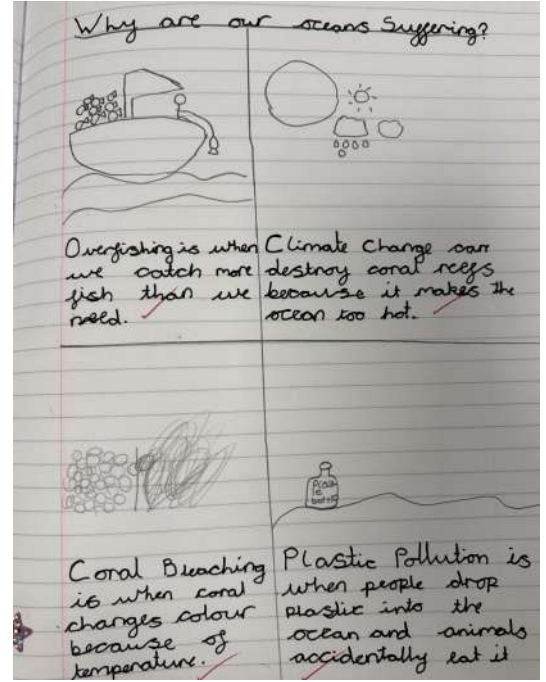 Why are our oceans Suffering?
Overfishing is when
we catch more
fish than we
need.
Climate Change can
destroy coral reefs
because it makes the
ocean too hot.
Plastic
bottle
Coral Bleaching
is when coral
changes colour
because of
temperature.
Plastic Pollution is
when people drop
plastic into the
ocean and animals
accidentally eat it